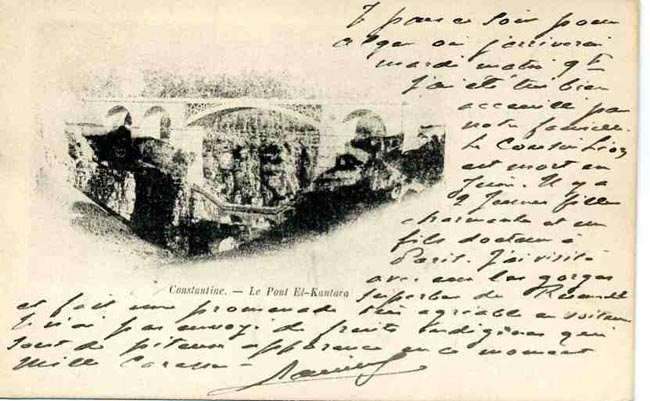 Je pars ce soir pour
Alger où j'arriverai
mardi matin 9h
J'ai été très bien
accueilli par
notre famille.
Le Cousin
est mort en
Juin. Il y a
2 jeunes filles
charmantes et un
fils docteur à
Paris. J'ai visité
avec eux les gorges
superbes du Rummel
et fait une promenade très agréable en voiture
Je n'ai pas envoyé de fruits indigènes qui
sont de piteuse apparence en ce moment
Mille caresses
Constantine. — Le Pont El-Kantara